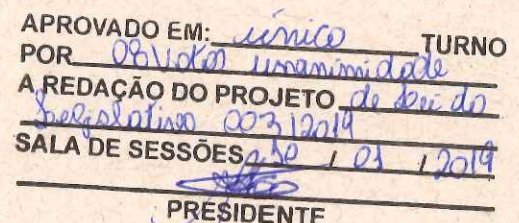 APROVADO EM: único TURNO
POR 08 Votos unanimidade
A REDAÇÃO DO PROJETO de Lei do
Legislativo 003/2019
SALA DE SESSÕES 30 / 01 / 2019
PRESIDENTE